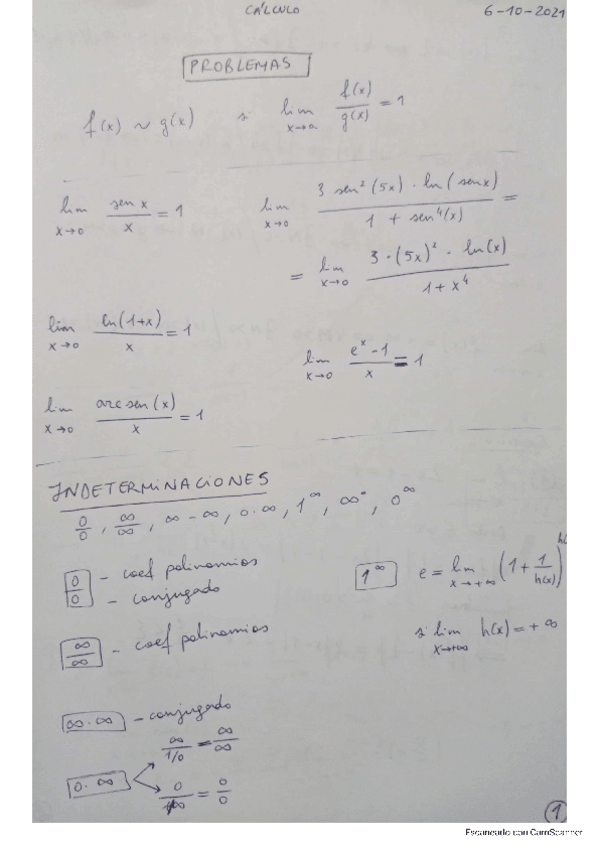 CÁLCULO 6-10-2021
PROBLEMAS
f(x) ~ g(x) si lim x→a f(x)/g(x) = 1
lim x→0 sen x / x = 1
lim x→0 3 sen²(5x) · ln(senx) / 1 + sen⁴(x) =
= lim x→0 3·(5x)² · ln(x) / 1 + x⁴
lim x→0 ln(1+x) / x = 1
lim x→0 eˣ - 1 / x = 1
lim x→0 arcsen(x) / x = 1
INDETERMINACIONES
0/0, ∞/∞, ∞-∞, 0·∞, 1^∞, ∞°, 0^∞
0/0 - coef polinomios
- conjugado
1^∞ e = lim x→+∞ (1 + 1/h(x))^h(
si lim x→+∞ h(x) = +∞
∞/∞ - coef polinomios
∞·∞ - conjugado
0·∞ ∞/1/0 = ∞/∞
0/1/∞ = 0/0
1
Escaneado con CamScanner